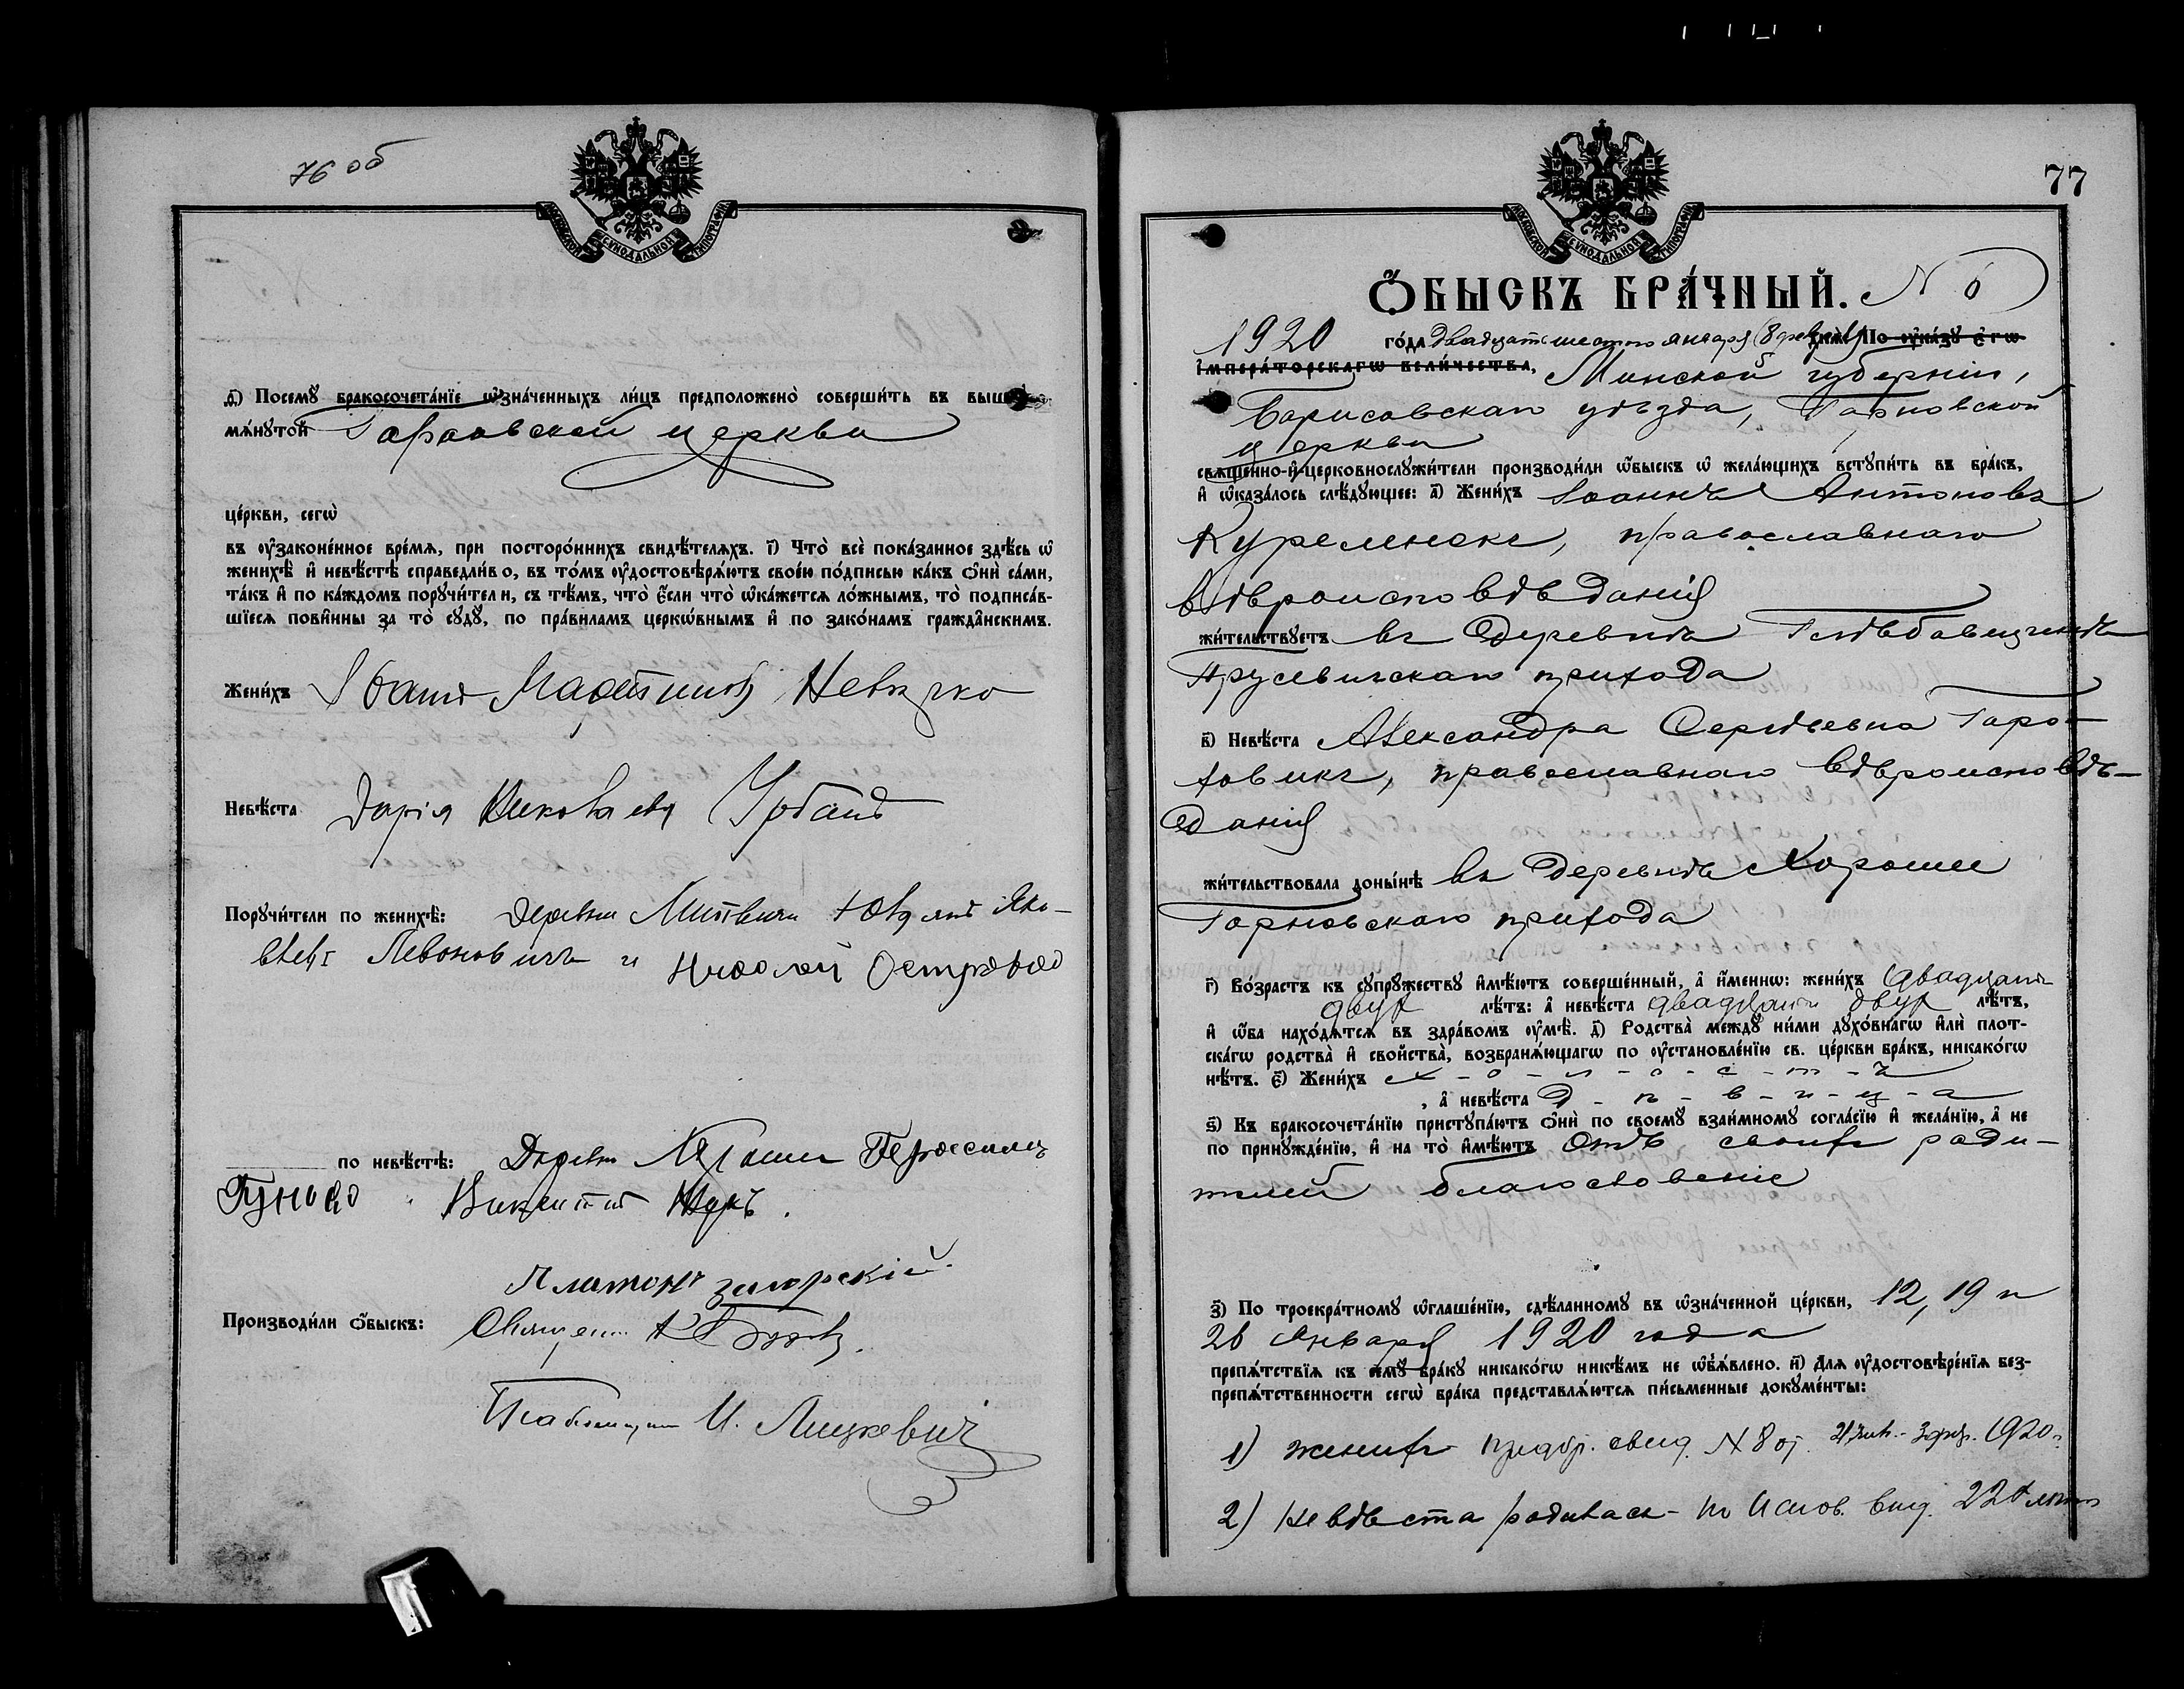 76 об
МОСКОВСКОЙ СѴНОДАЛЬНОЙ ТИПОГРАФІИ
д҃) Посемꙋ̀ бракосочета́нїе ѡ҆зна́ченныхъ ли́цъ предположено̀ соверши́ть въ выше
мѧ́нꙋтой церкви
це́ркви, сегѡ̀
въ ᲂу҆законе́нное вре́мѧ, при посторо́ннихъ свидѣ́телѧхъ. і҃) Что̀ всѐ пока́занное здѣ́сь ѡ҆
женихѣ̀ и҆ невѣ́стѣ справедли́во, въ то́мъ ᲂу҆достовѣрѧ́ютъ свое́ю по́дписью ка́къ ѻ҆нѝ са́ми,
та́къ и҆ по ка́ждомъ порꙋчи́тели, съ тѣ́мъ, что̀ є҆́сли что̀ ѡ҆ка́жетсѧ ло́жнымъ, то̀ подписа́в-
шїесѧ пови́нны за то̀ сꙋдꙋ̀, по пра́виламъ церкѡ́внымъ и҆ по зако́намъ гражда̑нскимъ.
Жени́хъ Иванъ
Невѣ́ста Дарія Николаева Урбанъ
Порꙋчи́тели по женихѣ̀: Деревни Литвичи
Левоновичъ и Николай
по невѣ́стѣ: Деревни
Викентий
Платонъ Загорскій.
Производи́ли ѻ҆́быскъ: Священ.
Псаломщикъ И. Лицкевичъ
77
МОСКОВСКОЙ СѴНОДАЛЬНОЙ ТИПОГРАФІИ
Ѻ҆́БЫСКЪ БРА́ЧНЫЙ. N 6
1920 го́да двадцать шестого января (8 февраля) дня По ᲂу҆ка́зꙋ є҆гѡ̀
і҆мпера́торскагѡ вели́чества, Минской губерніи,
Борисовскаго уѣзда, Гарновской
церкви
свѧще́нно-и҆-церковнослꙋжи́тели производи́ли ѡ҆́быскъ ѡ҆ жела́ющихъ встꙋпи́ть въ бра́къ,
и҆ ѡ҆каза́лось слѣ́дꙋющее: а҃) Жени́хъ Іоаннъ Антоновъ
православнаго
вѣроисповѣданія
жи́тельствꙋетъ въ деревнѣ
Прусевичскаго прихода
в҃) Невѣ́ста Александра Сергѣевна Горо-
ховикъ, православнаго вѣроисповѣ-
данія
жи́тельствовала доны́нѣ въ деревнѣ Хорошее
Гарновскаго прихода
г҃) Во́зрастъ къ сꙋпрꙋ́жествꙋ и҆мѣ́ютъ соверше́нный, а҆ и҆́меннѡ: жени́хъ двадцати
двухъ лѣ́тъ: а҆ невѣ́ста двадцати двухъ лѣ́тъ,
и҆ ѻ҆́ба нахо́дѧтсѧ въ здра́вомъ ᲂу҆мѣ̀. д҃) Родства̀ междꙋ̀ ни́ми дꙋхо́внагѡ и҆лѝ плот-
ска́гѡ родства̀ и҆ сво́йства̀, возбранѧ́ющагѡ по ᲂу҆становле́нїю св. це́ркви бра́къ, никако́гѡ
нѣ́тъ. є҃) Жени́хъ х-о-л-о-с-т-ъ
, а҆ невѣ́ста д-ѣ-в-и-ц-а
ѕ҃) Къ бракосочета́нїю пристꙋпа́ютъ ѻ҆нѝ по своемꙋ̀ взаи́мномꙋ согла́сїю и҆ жела́нїю, а҆ не
по принꙋжде́нїю, и҆ на то̀ и҆мѣ́ютъ отъ своихъ роди-
телей благословеніе
з҃) По троекра́тномꙋ ѡ҆глаше́нїю, сдѣ́ланномꙋ въ ѡ҆зна́ченной це́ркви, 12, 19 и
26 Января 1920 года
препѧ́тствїѧ къ семꙋ̀ бра́кꙋ никако́гѡ никѣ́мъ не ѡ҆б̾ѧ́влено. и҃) Длѧ ᲂу҆достовѣре́нїѧ без-
препѧ́тственности сегѡ̀ бра́ка представлѧ́ютсѧ пи́сьменные докꙋме́нты:
1) женихъ предбр. свид. N 8 от 21 янв.- 3 фев. 1920 г.
2) Невѣста родилась - по Испов.